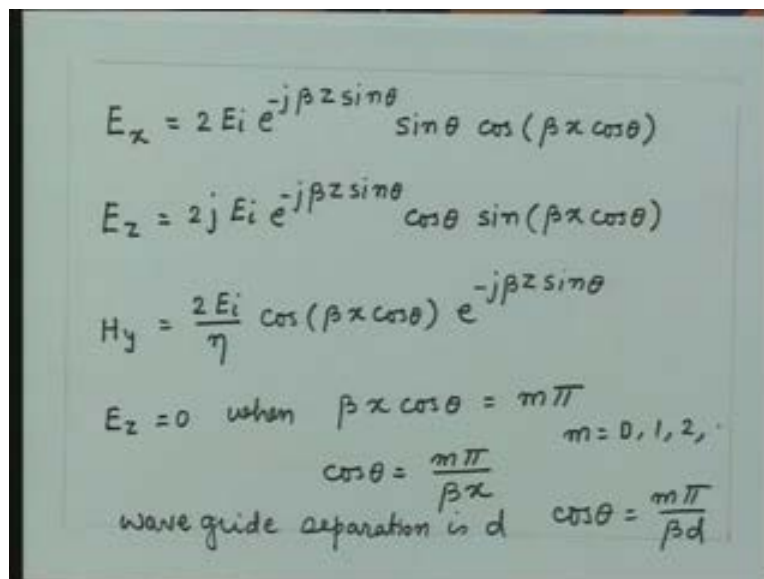 Ex = 2 Ei e^-jβz sinθ sinθ cos(βx cosθ)
Ez = 2j Ei e^-jβz sinθ cosθ sin(βx cosθ)
Hy = 2Ei/η cos(βx cosθ) e^-jβz sinθ
Ez = 0 when βx cosθ = mπ
m = 0, 1, 2, .
cosθ = mπ/βx
wave guide separation is d cosθ = mπ/βd